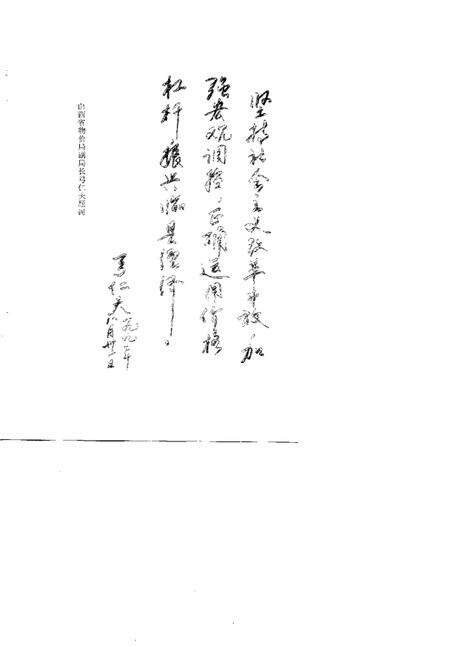 坚持社会主义改革开放，加
强宏观调控，正确运用价格
杠杆，振兴临县经济。
仁夫
一九九二年
八月卅一日
山西省物价局副局长 仁夫题词